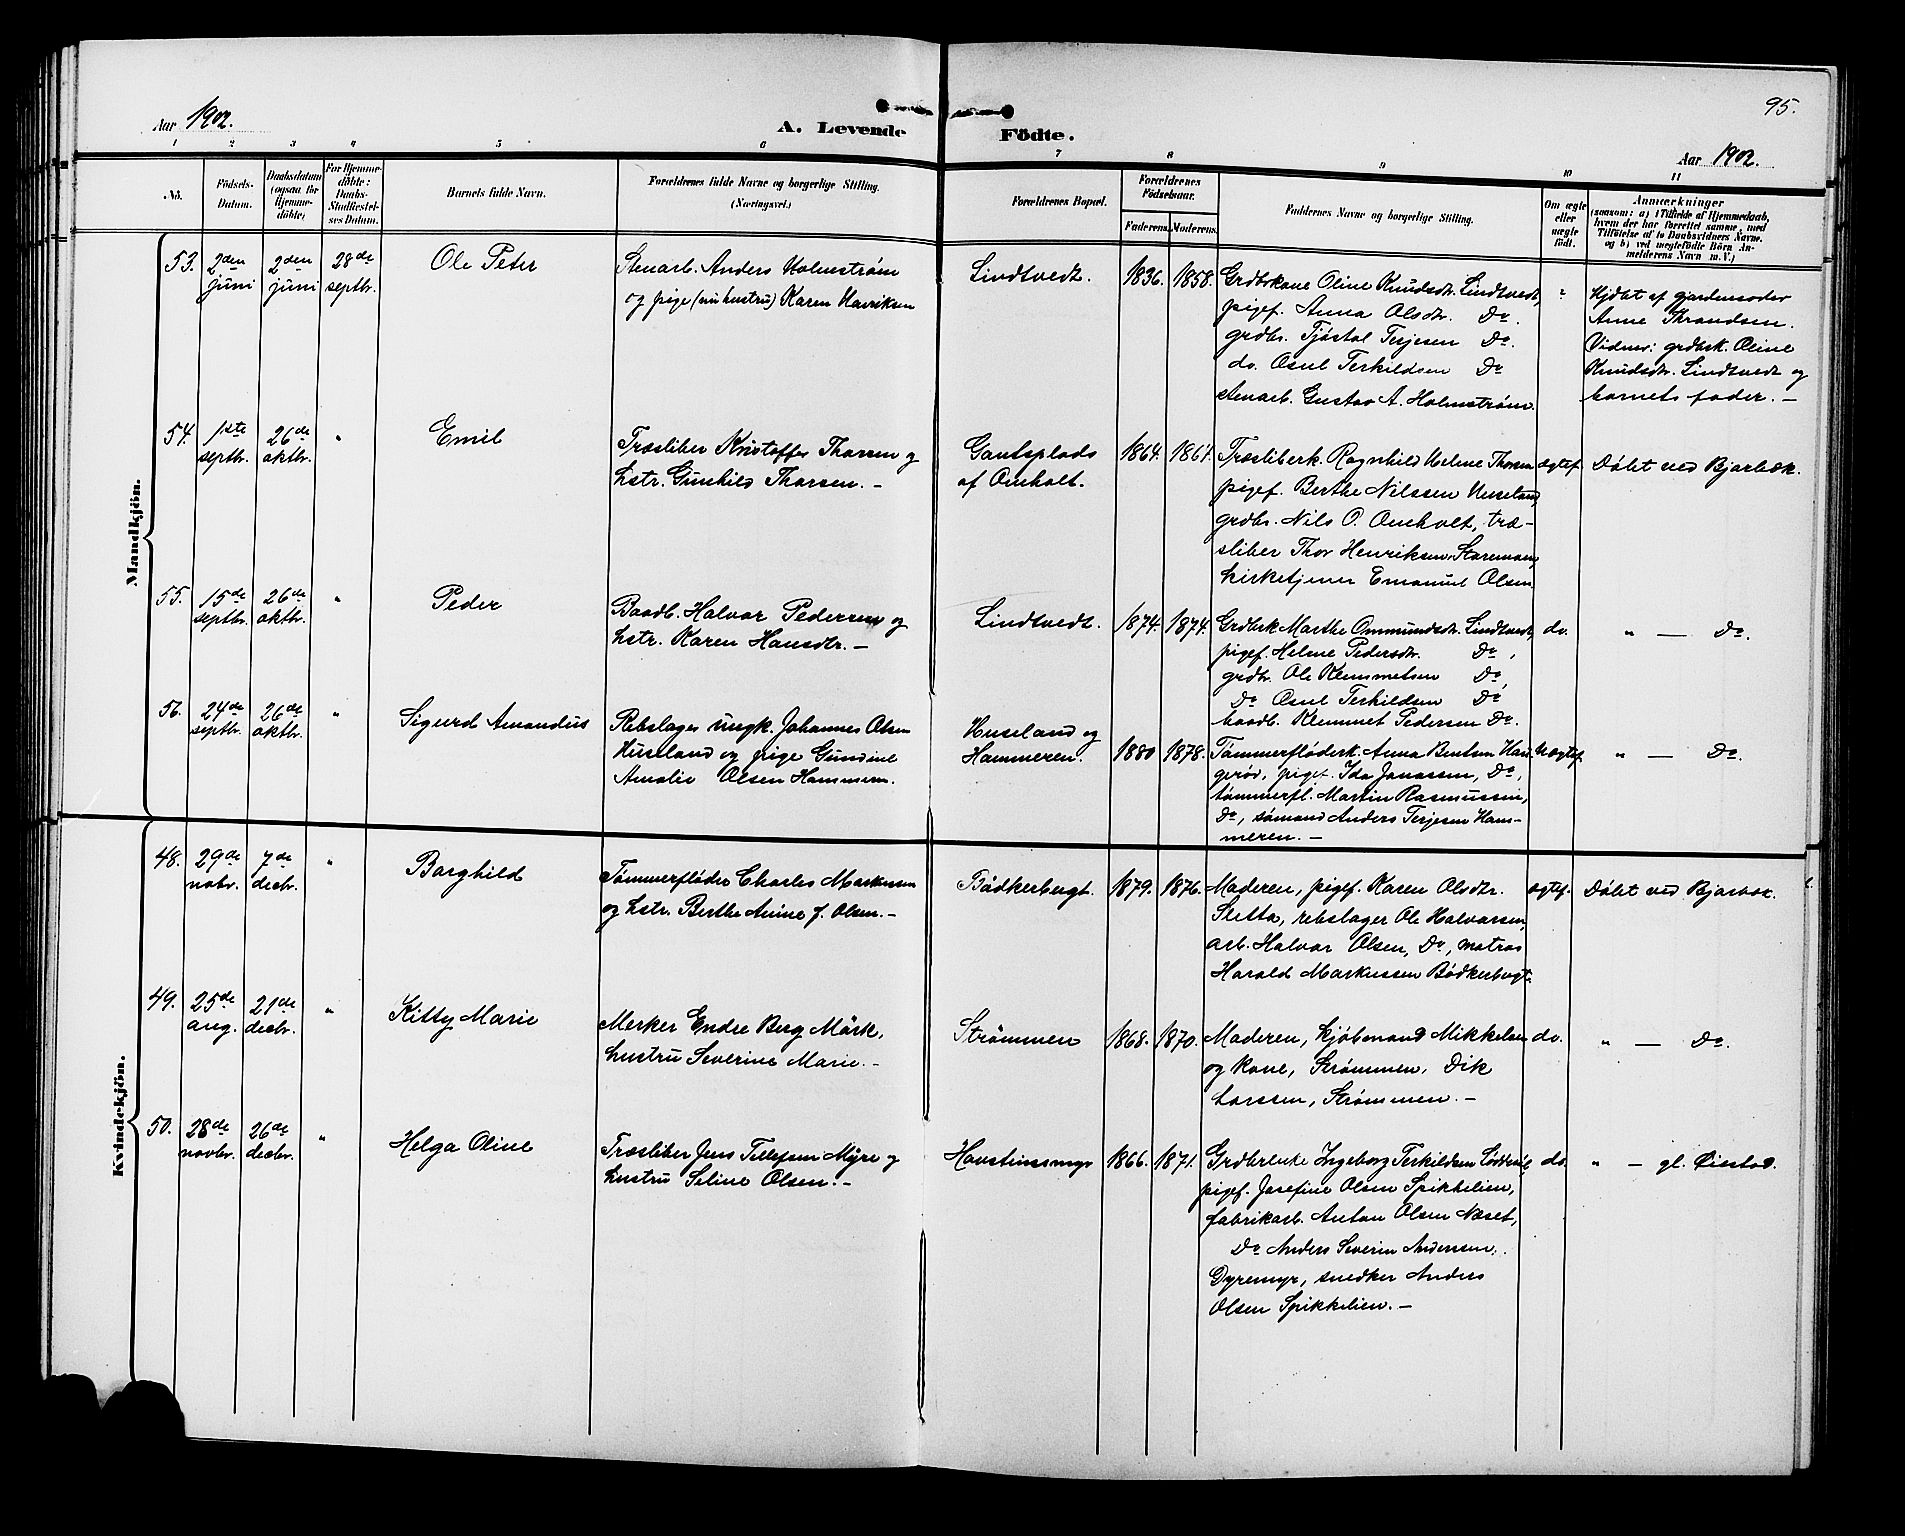 95.
Aar 1902.
A. Levende Födte.
Aar 1902.
1 2 3 4 5 6 7 8 9 10 11
No.
Födsels-
Datum.
Daabsdatum
(ogsaa for
Hjemme-
döbte)
For Hjemme-
döbte:
Daabs-
Stadfæstel-
ses Datum.
Barnets fulde Navn.
Forældrenes fulde Navne og borgerlige Stilling.
(Næringsvei.)
Forældrenes Bopæl.
Forældrenes
Födselsaar.
Faderens. Moderens.
Faddernes Navne og borgerlige Stilling.
Om ægte
eller
uægte
födt.
Anmærkninger
(saasom: a) i Tilfælde af Hjemmedaab,
hvem der har forrettet samme, med
Tilföielse af to Daabsvidners Navne.
og b) ved uægtefödte Börn An-
melderens Navn m. V.)
Mandkjön.
53. 2den juni
2den juni
28de septbr.
Ole Peter
Stenarb. Anders Holmstrøm
og pige (nu hustru) Karen Henriksen
Lindtvedt.
1836. 1858.
Grdbrkone Oline Knudsdr. Lindtvedt,
pigef. Anna Olsdr. Do.
grdbr. Tjøstol Terjesen Do.
do. Osul Terkildsen Do
stenarb. Gustav A. Holmstrøm.
"
Hjdbt af gjordemoder
Anne Thrandsen.
Vidner: grdbrk. Oline
Knudsdr. Lindtvedt og
barnets fader. -
54. 1ste septbr.
26de oktbr.
"
Emil
Træsliber Kristoffer Thorsen og
hstr. Gunhild Thorsen. -
Gautsplads
af Omholt.
1864. 1867.
Træsliberk. Ragnhild Helene Thorsen
pigef. Berthe Nilssen Huseland,
grdbr. Nils O. Omholt, træ-
sliber Thor Henriksen,
kirketjener Emanuel Olsen
ægtef.
Döbt ved Bjorbæk.
55. 15de septbr.
26de oktbr.
"
Peder
Baadb. Halvor Pedersen og
hstr. Karen Hansdtr. -
Lindtvedt.
1874. 1874.
Grdbrk Marthe Ommundsdr. Lindtvedt,
pigef. Helene Pedersdtr. Do,
grdbr. Ole Klemmetsen Do,
Do Osul Terkildsen Do
baadb. Klemmet Pedersen Do.
do.
" - Do.
56. 24de septbr.
26de oktbr.
"
Sigurd Amandus
Rebslager ungk. Johannes Olsen
Huseland og pige Gundine
Amalie Olsen Hammeren.
Huseland og
Hammeren.
1880 1878.
Tømmerfløderk. Anna Bentsen Hau-
gerød, pigef. Ida Jonassen, Do,
tømmerfl. Martin Rasmussen,
Do, sømand Anders Terjesen Ham-
meren. -
Uægtef.
" - Do.
Kvindekjön.
48. 29de nobr.
7de decbr.
"
Borghild
Tømmerfløder Charles Markussen
og hstr. Berthe Anine f. Olsen. -
Bödkerbugt.
1879. 1876.
Moderen, pigef. Karen Olsdtr.
Sletta, rebslager Ole Halvorsen,
arb. Halvor Olsen, Do, matros
Harald Markussen Bödkerbugt.
ægtef.
Döbt ved Bjorbæk.
49. 25de aug.
21de decbr.
"
Kitty Marie
Merker Endre Berg Mörk,
hustru Severine Marie. -
Strømmen
1868. 1870.
Moderen, kjöbmand Mikkelsen
og kone, Strømmen, Dik
Larssen, Strømmen. -
do.
" - Do.
50. 28de novbr.
26de decbr.
"
Helga Oline
Træsliber Jens Tellefsen Myre og
hustru Seline Olsen. -
Havstinsmyr
1866. 1871.
Grdbrenke Ingeborg Terkildsen
pigef. Josefine Olsen Spikkelien,
fabrikarb. Anton Olsen Næset,
Do Anders Severin Andersen,
Dyremyr, snedker Anders
Olsen Spikkelien. -
do.
" - gl. Øiestad.